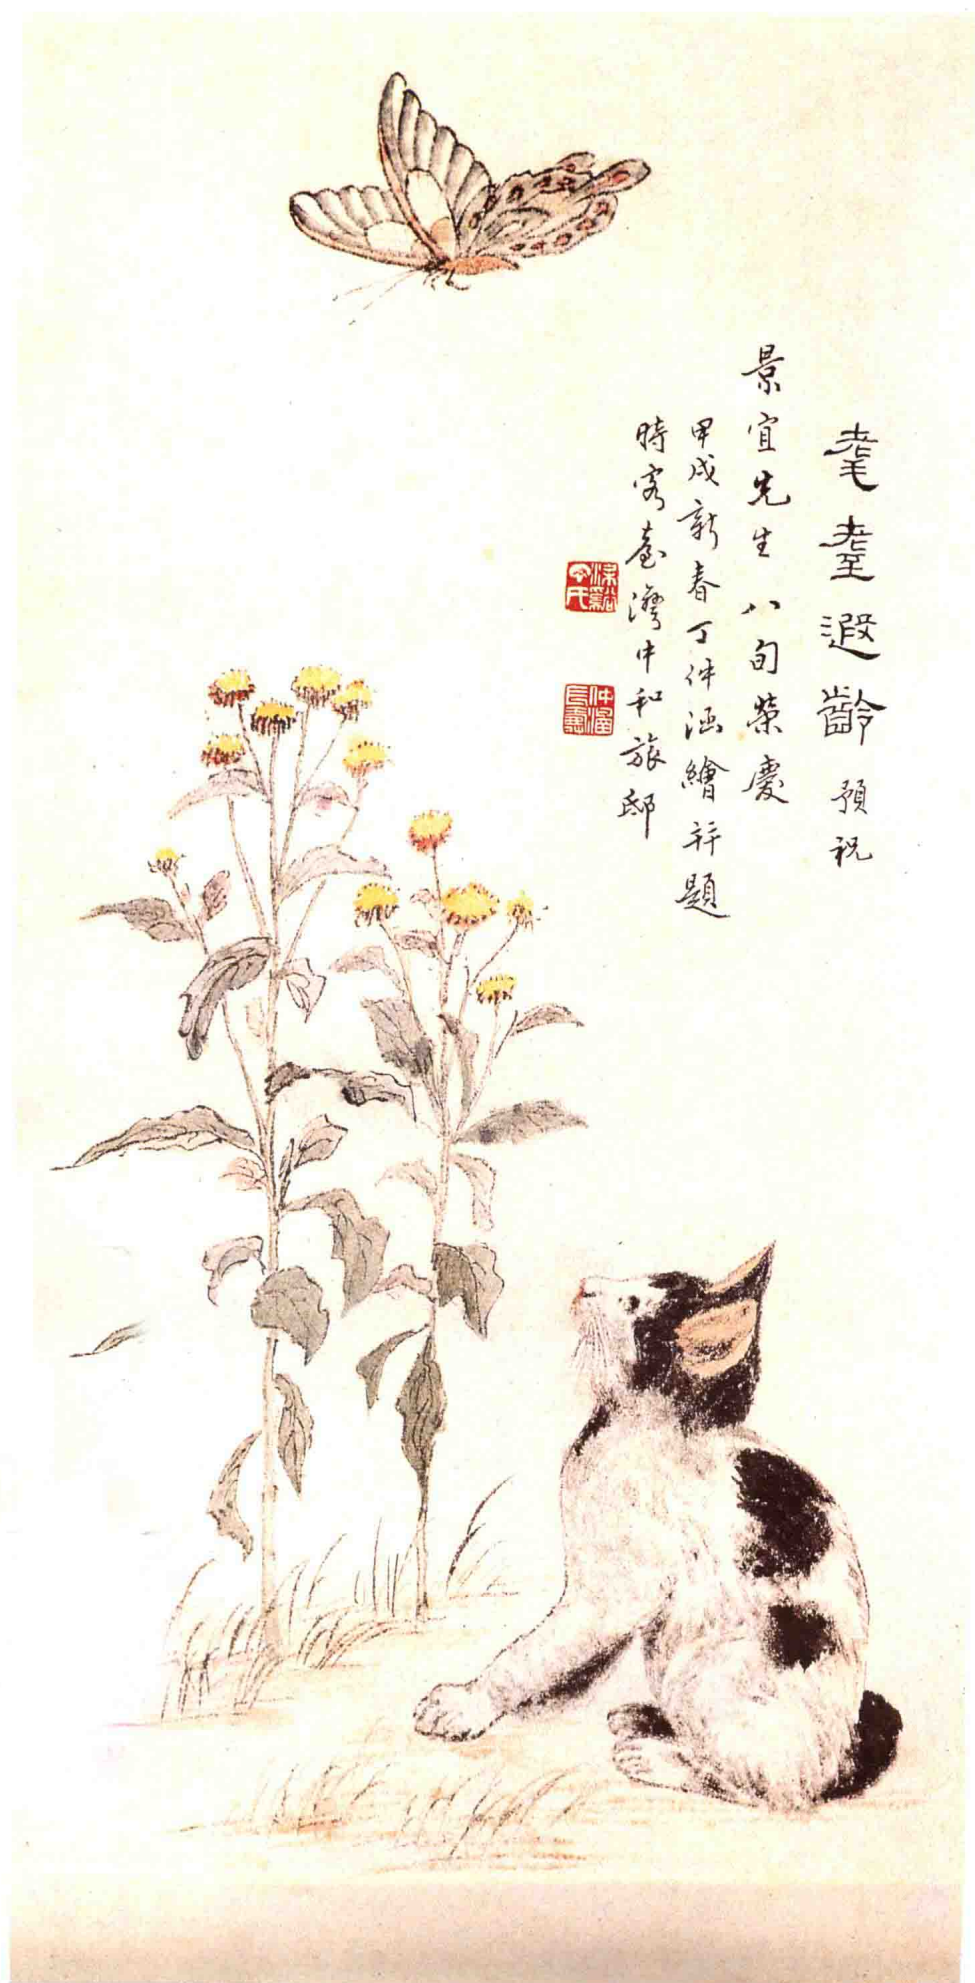 耄耋遐齡 預祝
景宜先生八旬榮慶
甲戌新春丁仲涵繪並題
時客臺灣中和旅邸